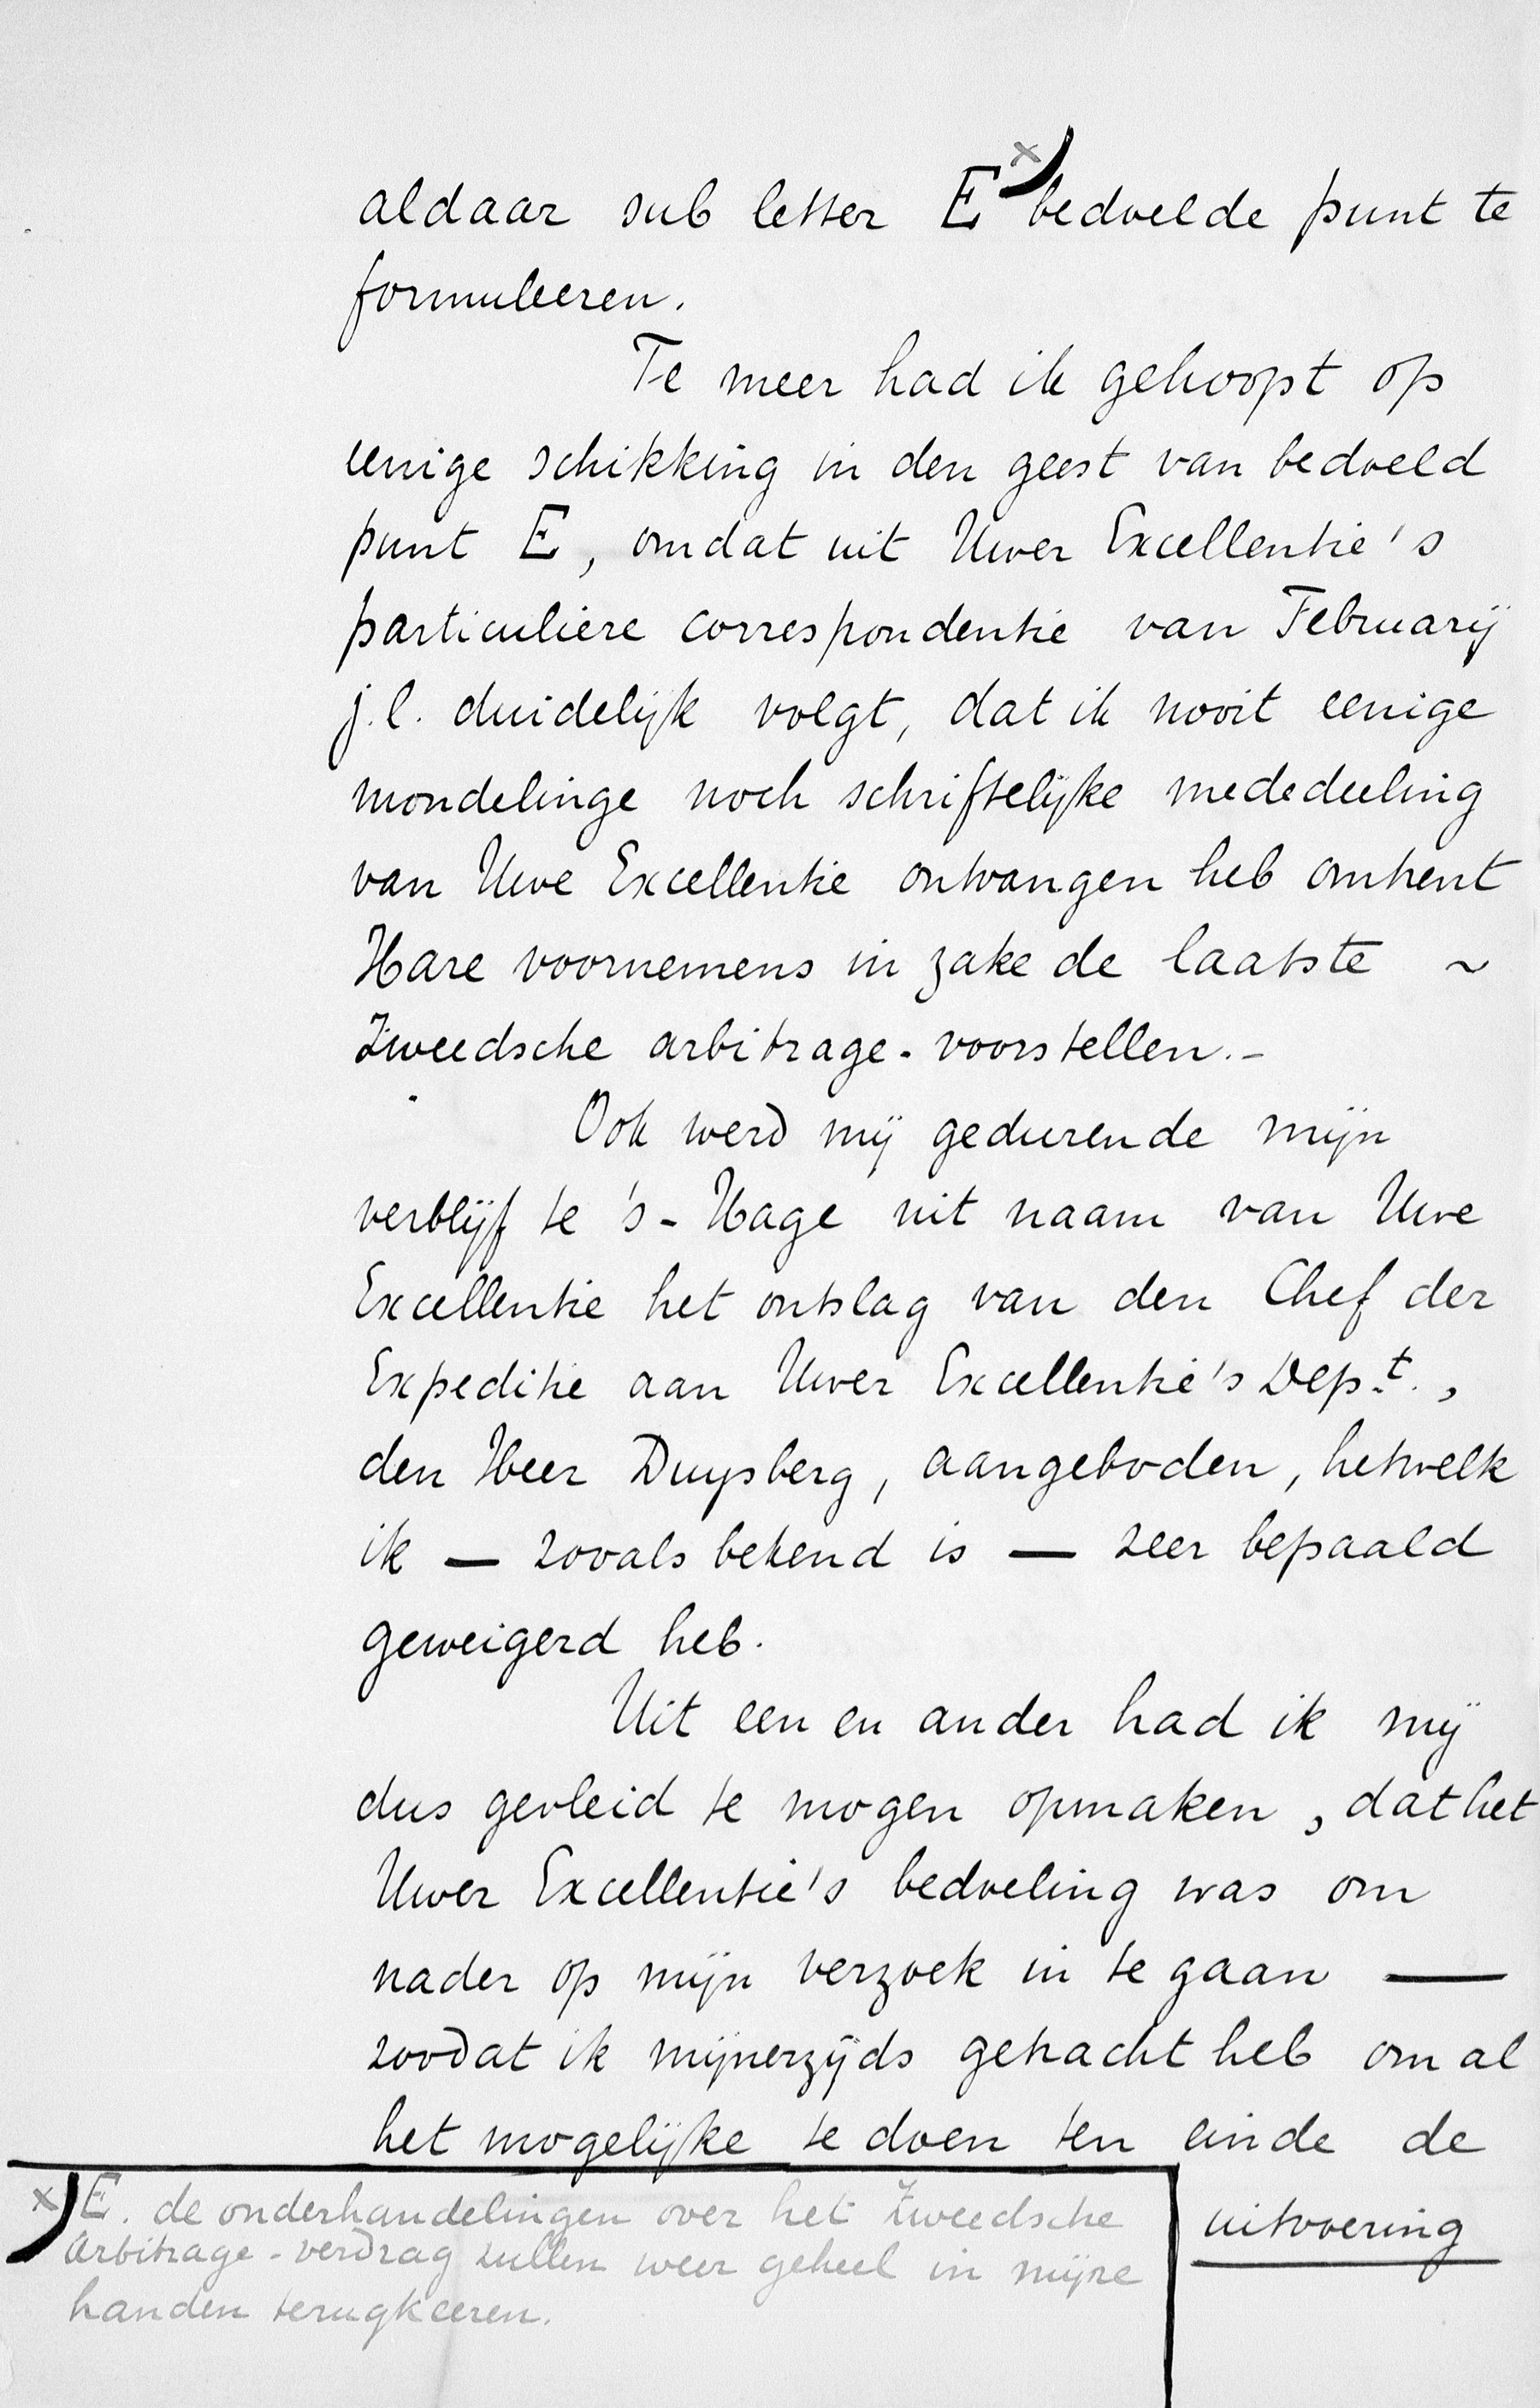 aldaar sub letter E x) bedoelde punt te
formuleeren.
Te meer had ik gehoopt op
eenige schikking in den geest van bedoeld
punt E, omdat uit Uwer Excellentie's
particuliere correspondentie van Februarij
j.l. duidelijk volgt, dat ik nooit eenige
mondelinge noch schriftelijke mededeeling
van Uwe Excellentie ontvangen heb omtrent
Hare voornemens in zake de laatste ~
Zweedsche arbitrage-voorstellen.-
Ook werd mij gedurende mijn
verblijf te 's-Hage uit naam van Uwe
Excellentie het ontslag van den Chef der
Expeditie aan Uwer Excellentie's Dept.,
den Heer Duysberg, aangeboden, hetwelk
ik — zooals bekend is — zeer bepaald
geweigerd heb.
Uit een en ander had ik mij
dus gevleid te mogen opmaken, dat het
Uwer Excellentie's bedoeling was om
nader op mijn verzoek in te gaan —
zoodat ik mijnerzijds getracht heb om al
het mogelijke te doen ten einde de
uitvoering
x) E. de onderhandelingen over het Zweedsche
Arbitrage-verdrag zullen weer geheel in mijne
handen terugkeeren.